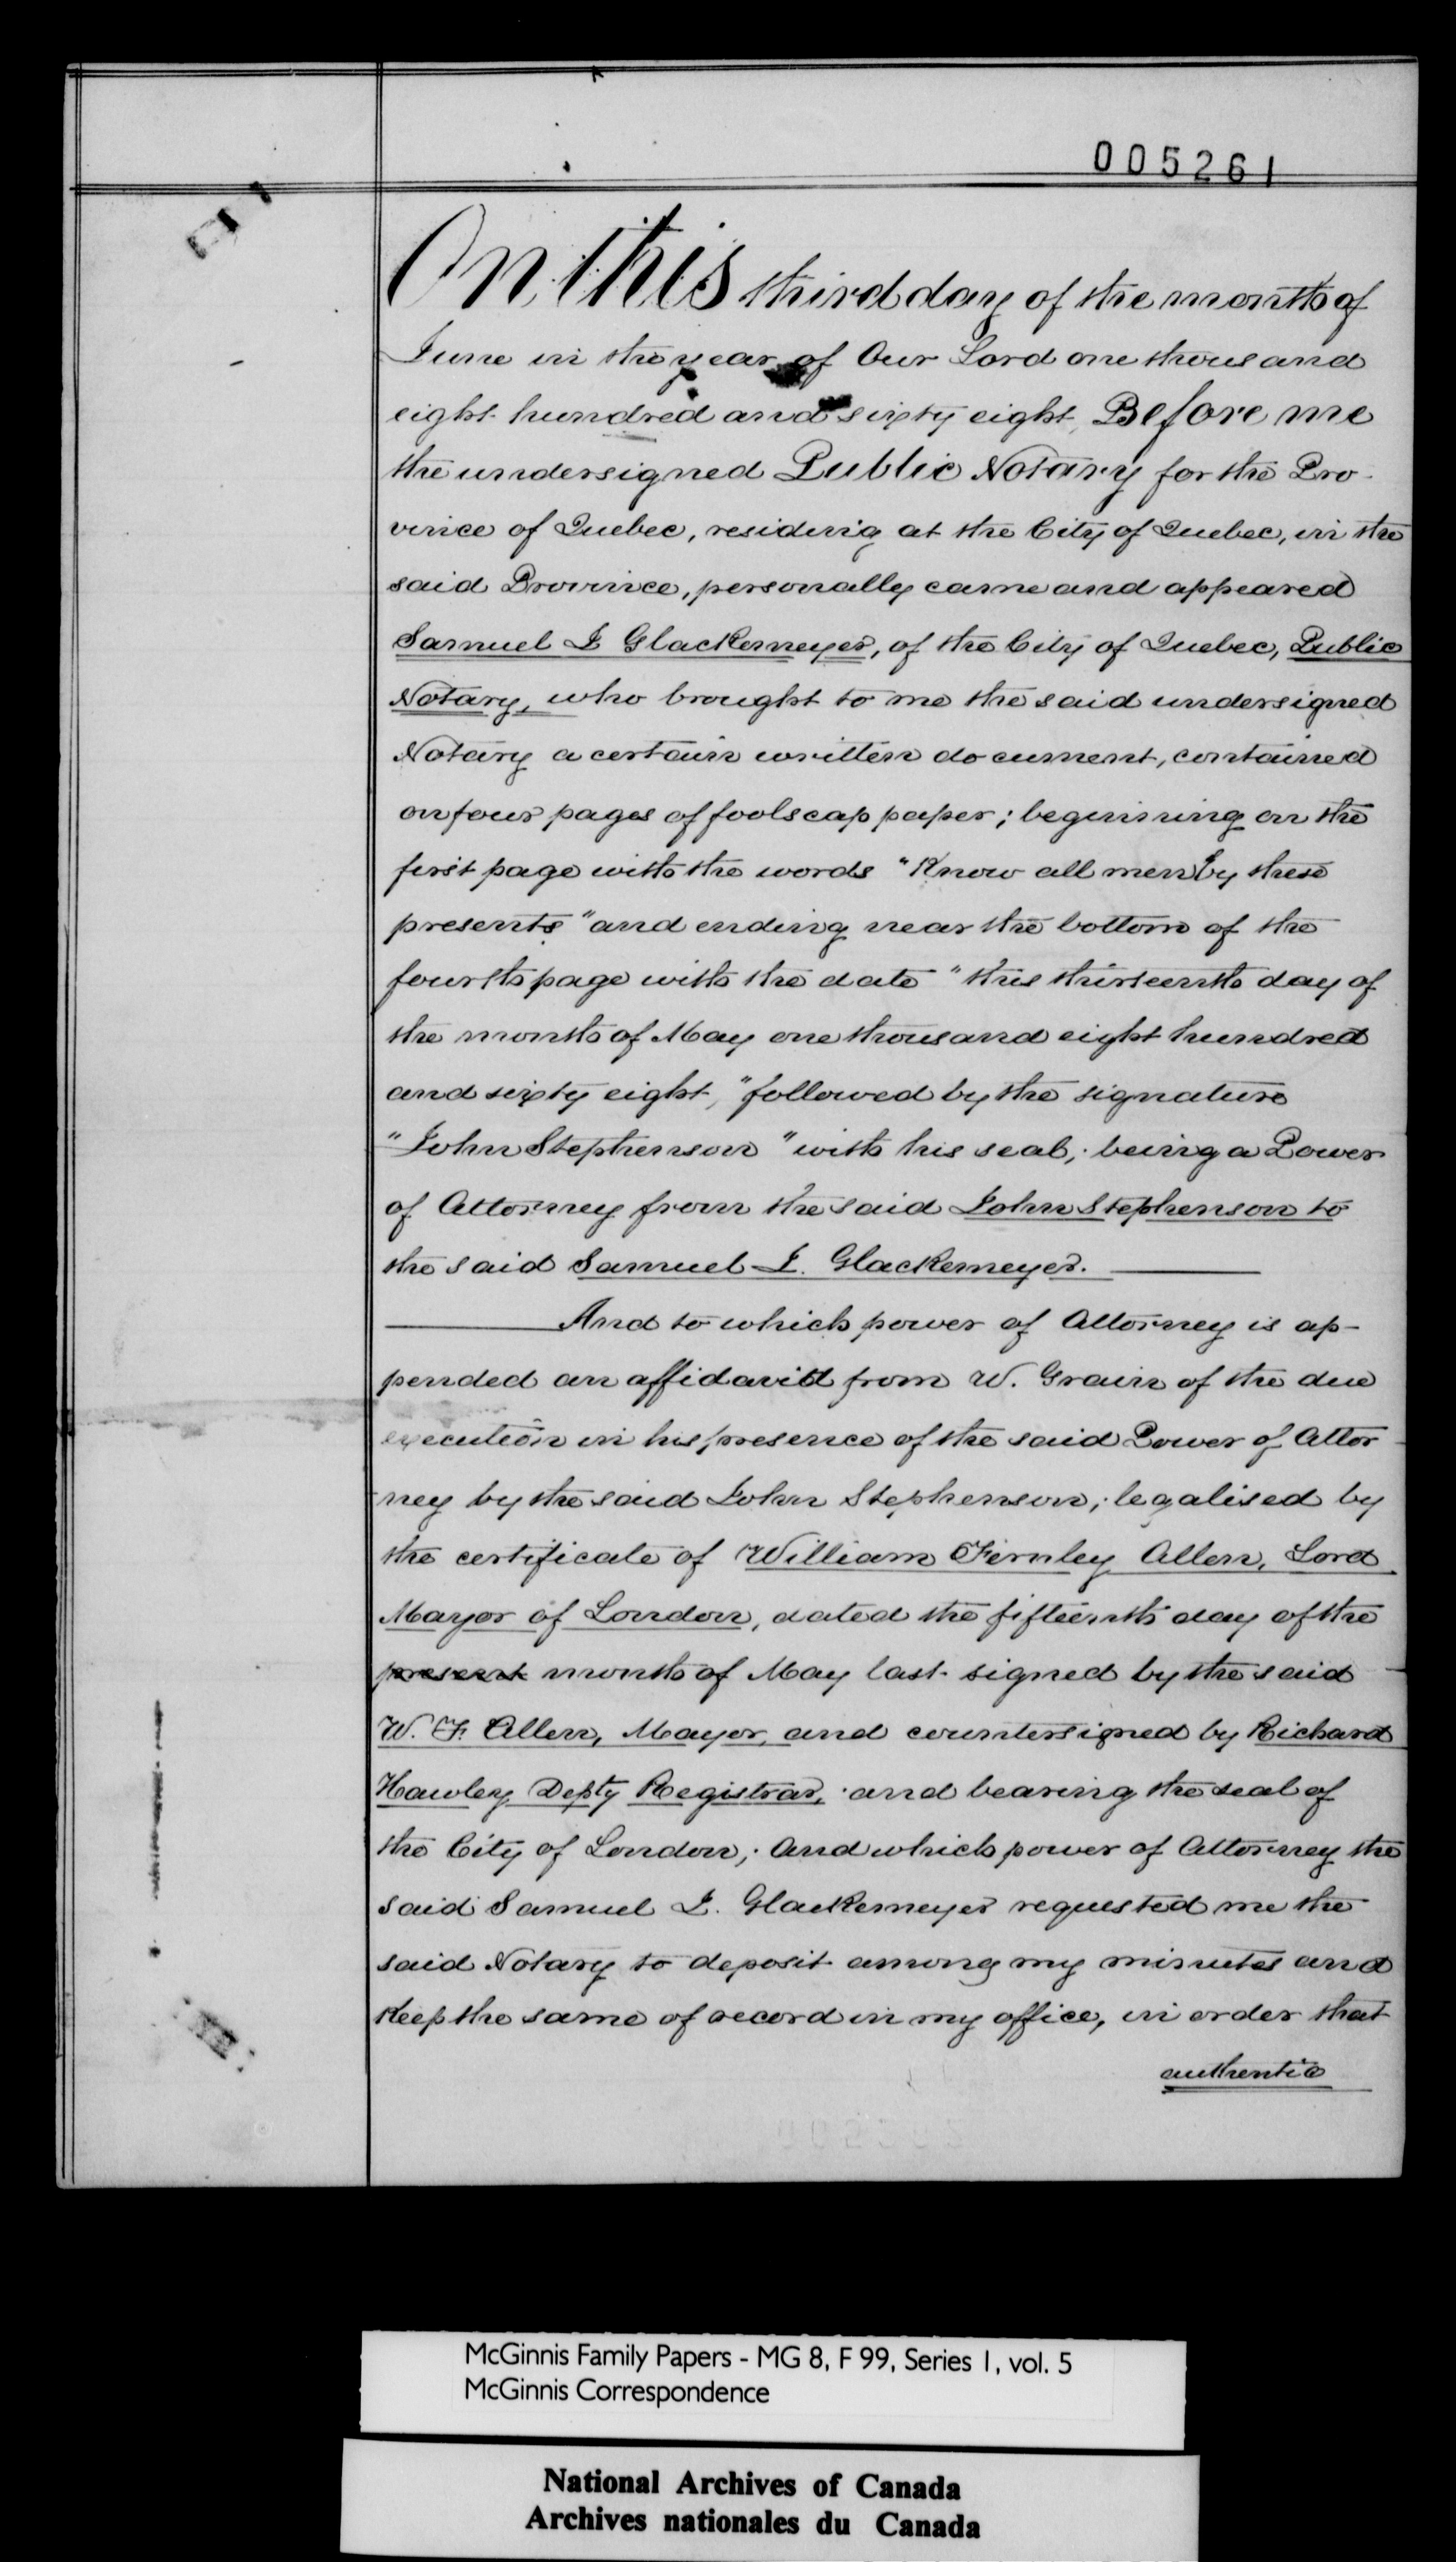 005261
On this third day of the month of
June in the year of Our Lord one thousand
eight hundred and sixty eight, Before me
the undersigned Public Notary for the Pro-
vince of Quebec, residing at the City of Quebec, in the
said Province, personally came and appeared
Samuel I Glackemeyer, of the City of Quebec, Public
Notary, who brought to me the said undersigned
Notary a certain written document, contained
on four pages of foolscap paper; beginning on the
first page with the words "Know all men by these
presents" and ending near the bottom of the
fourth page with the date "this thirteenth day of
the month of May one thousand eight hundred
and sixty eight," followed by the signature
"John Stephenson" with his seal; being a Power
of Attorney from the said John Stephenson to
the said Samuel I. Glackemeyer.
And to which power of Attorney is ap-
pended an affidavit from W. Grain of the due
execution in his presence of the said Power of Attor
ney by the said John Stephenson; legalised by
the certificate of William Fernley Allen, Lord
Mayor of London, dated the fifteenth day of the
present month of May last signed by the said
W. F. Allen, Mayor, and countersigned by Richard
Hawley Depty Registrar, and bearing the seal of
the City of London; And which power of Attorney the
said Samuel I. Glackemeyer requested me the
said Notary to deposit among my minutes and
keep the same of record in my office, in order that
authentic
McGinnis Family Papers - MG 8, F 99, Series 1, vol. 5
McGinnis Correspondence
National Archives of Canada
Archives nationales du Canada